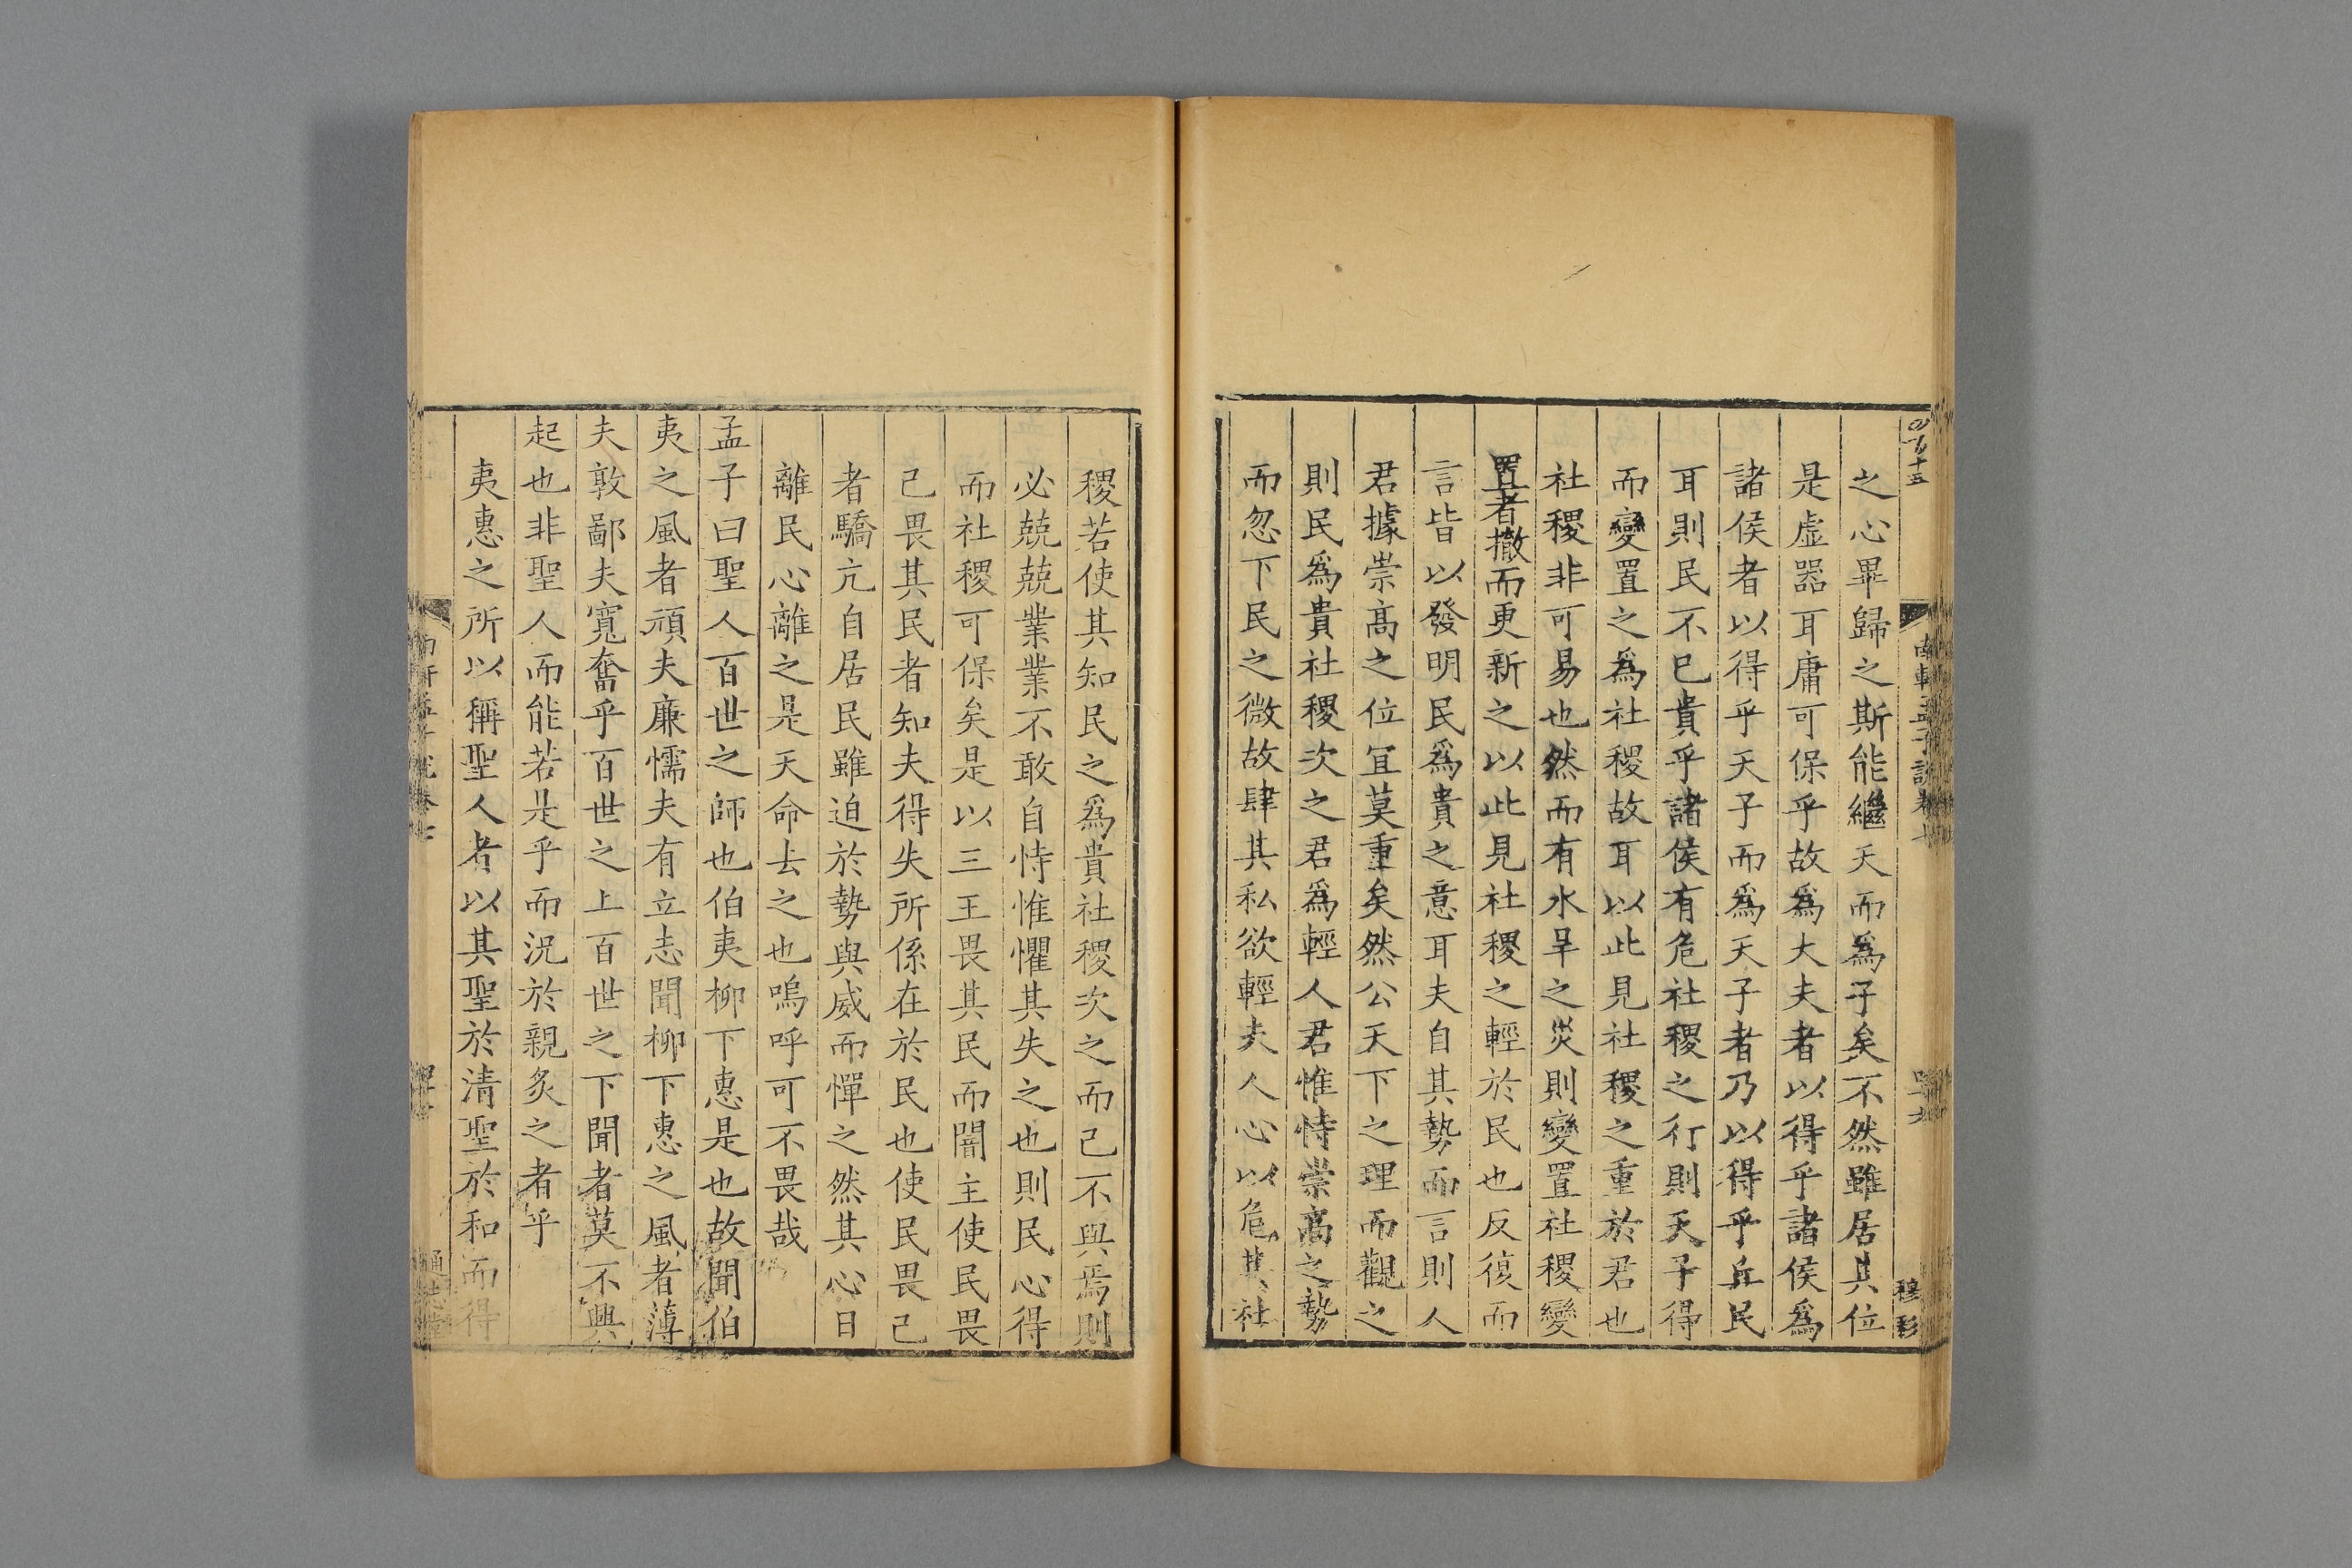 之心畢歸之斯能繼天而爲子矣不然雖居其位
是虛器耳庸可保乎故爲大夫者以得乎諸侯爲
諸侯者以得乎天子而爲天子者乃以得乎丘民
耳則民不已貴乎諸侯有危社稷之行則天子得
而變置之爲社稷故耳以此見社稷之重於君也
社稷非可易也然而有水旱之災則變置社稷變
置者撤而更新之以此見社稷之輕於民也反復而
言皆以發明民爲貴之意耳夫自其勢而言則人
君據崇高之位宜莫重矣然公天下之理而觀之
則民爲貴社稷次之君爲輕人君惟恃崇高之勢
而忽下民之微故肆其私欲輕失人心以危其社
稷若使其知民之爲貴社稷次之而己不與焉則
必兢兢業業不敢自恃惟懼其失之也則民心得
而社稷可保矣是以三王畏其民而闇主使民畏
己畏其民者知夫得失所係在於民也使民畏己
者驕亢自居民雖迫於勢與威而憚之然其心日
離民心離之是天命去之也嗚呼可不畏哉
孟子曰聖人百世之師也伯夷柳下惠是也故聞伯
夷之風者頑夫廉懦夫有立志聞柳下惠之風者薄
夫敦鄙夫寬奮乎百世之上百世之下聞者莫不興
起也非聖人而能若是乎而況於親炙之者乎
夷惠之所以稱聖人者以其聖於清聖於和而得
通志堂